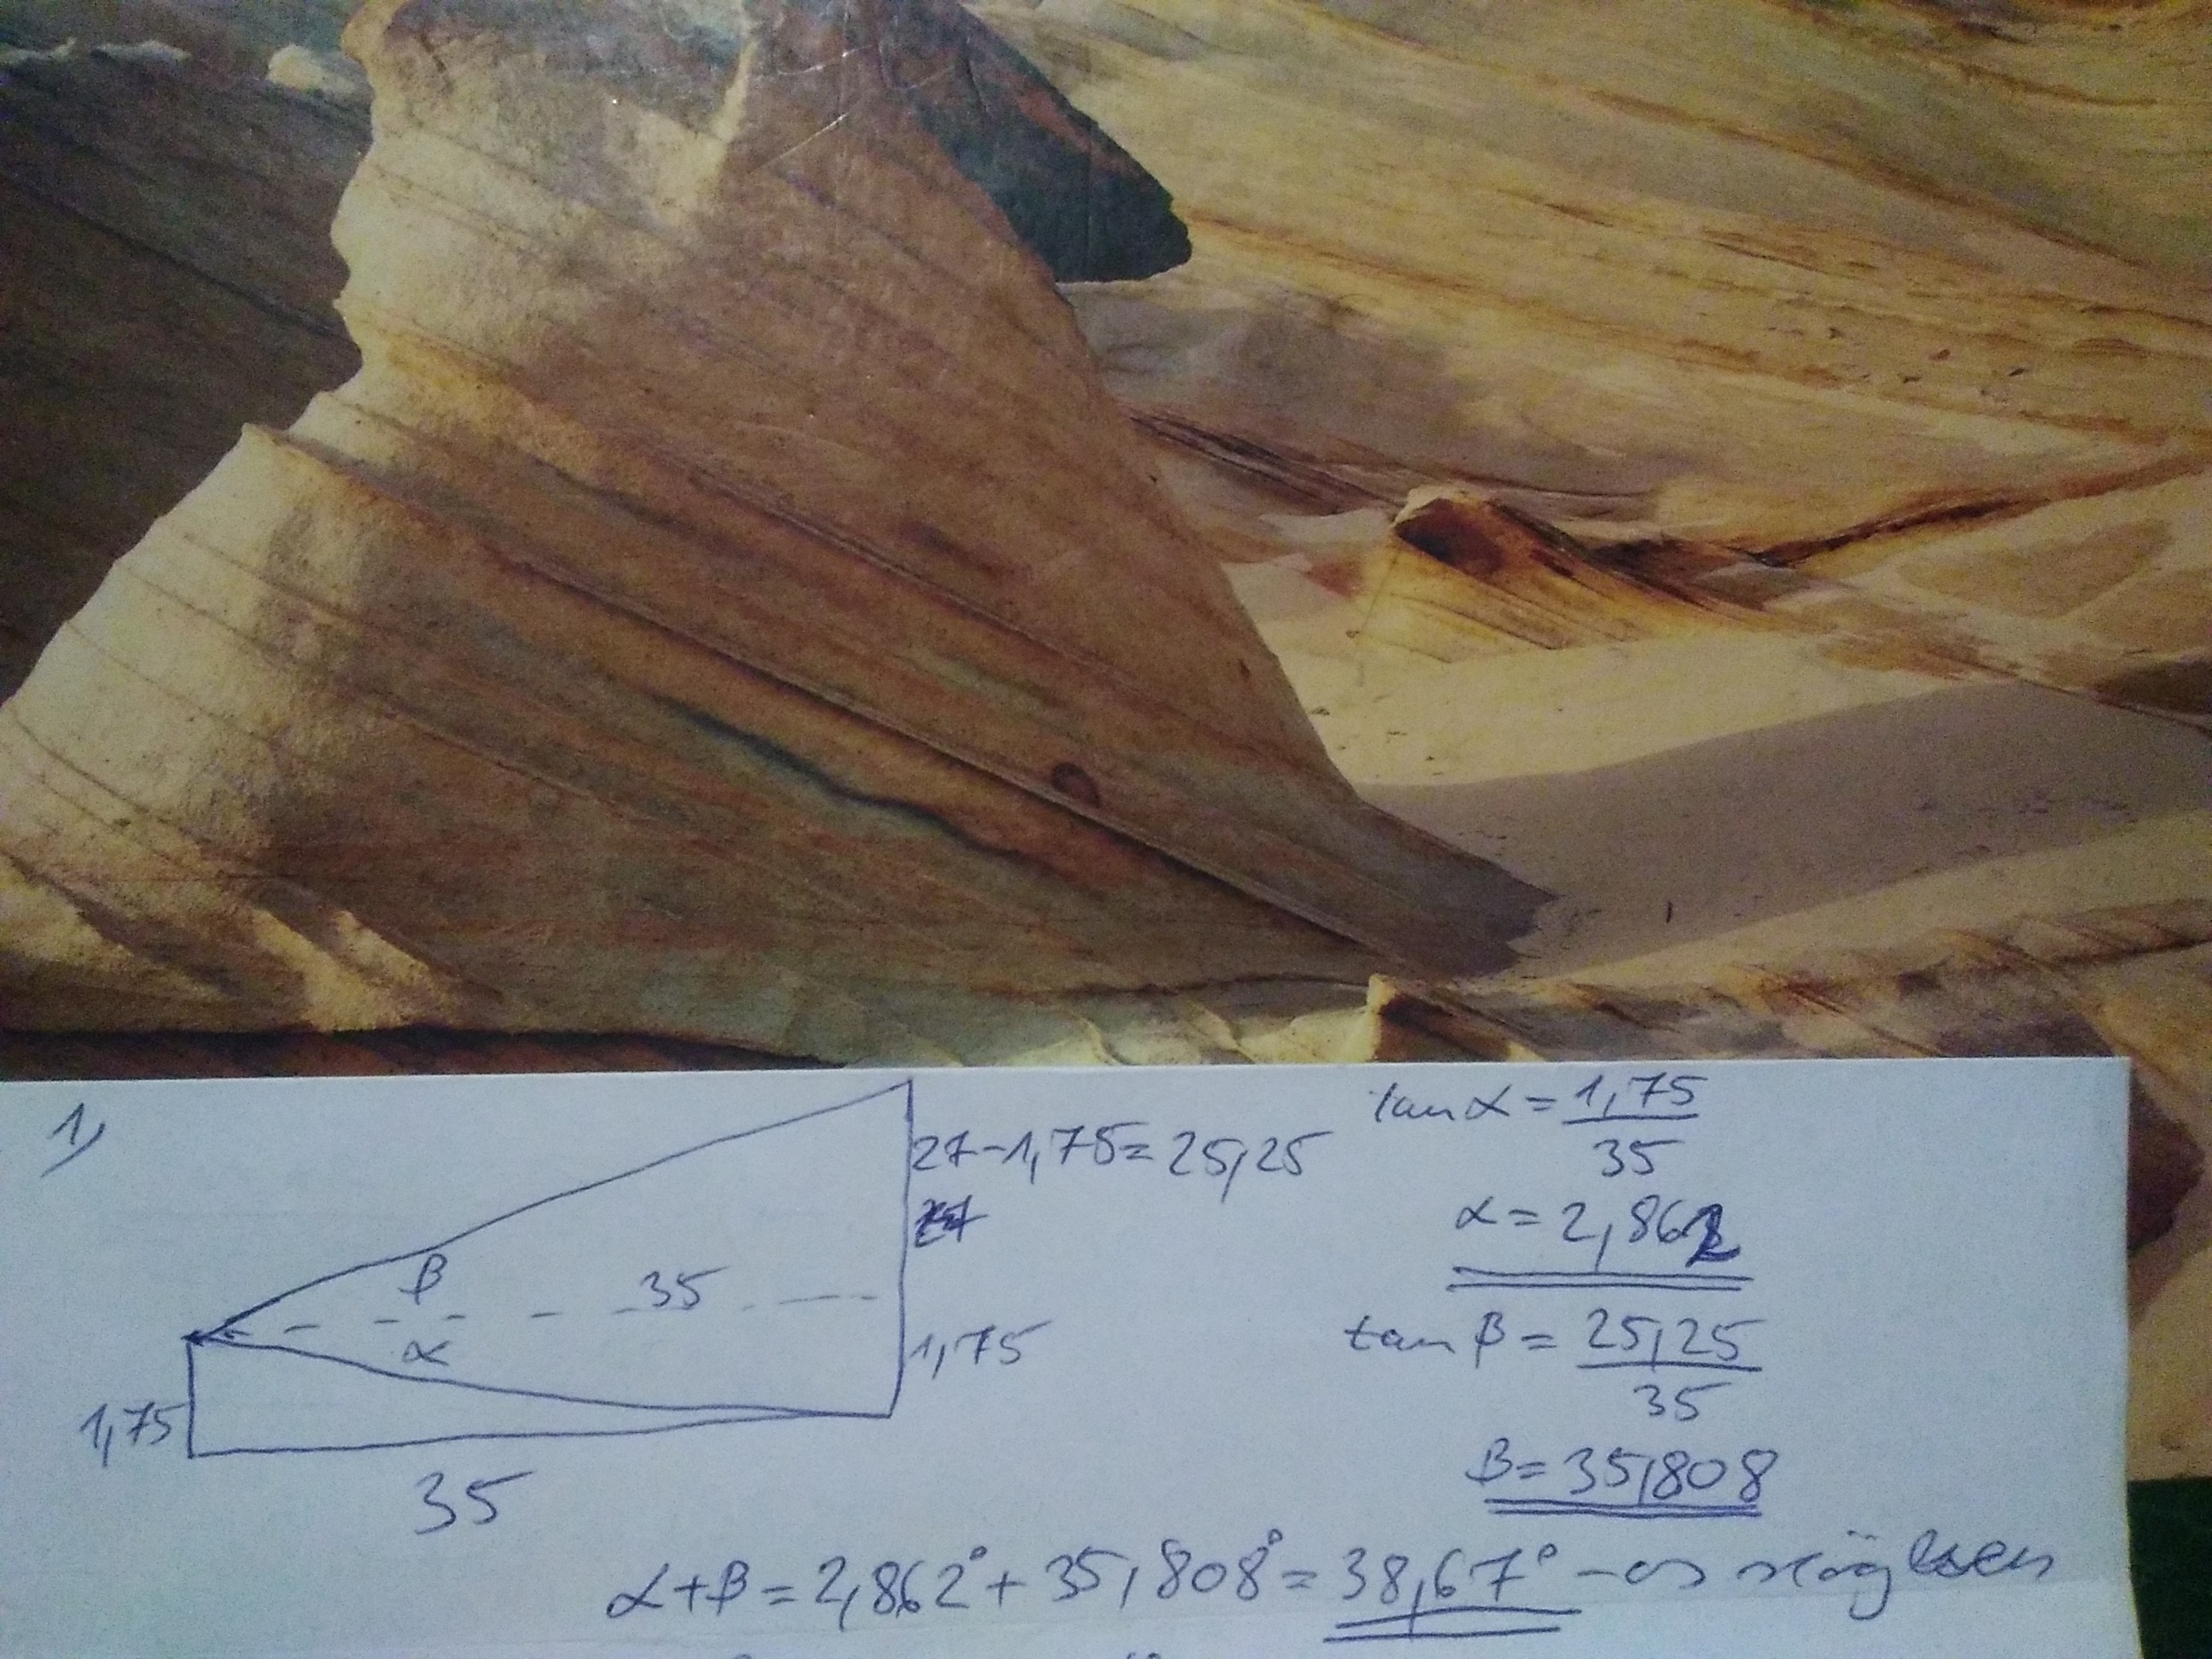 1,
27-1,75=25,25
β
35
α
1,75
1,75
35
tan α = 1,75
35
α = 2,862
tan β = 25,25
35
β = 35,808
α+β = 2,862° + 35,808° = 38,67° -os szögben